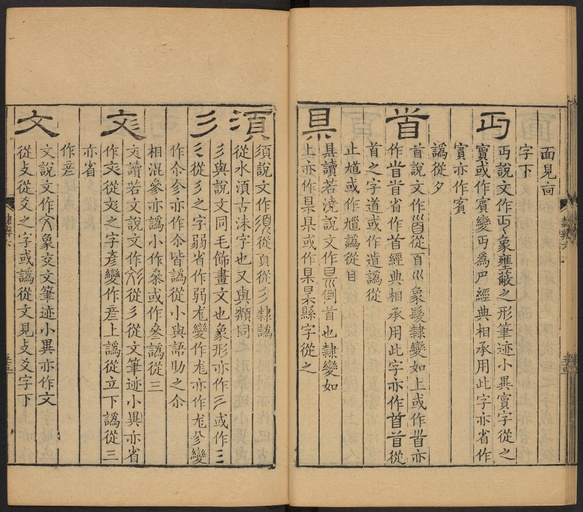 面見𦣻
字下
丏
丏說文作丏象壅蔽之形筆迹小異賓字從之
賓或作賔變丏為𠂭經典相承用此字亦省作
賔亦作賓
譌從夕
首
首說文作𩠐從𦣻巛象髮隸變如上或作𩠐亦
作𩠐省作首經典相承用此字亦作首𦣻從
首之字道或作道譌從
止馗或作馗譌從目
県
県讀若澆說文作県到首也隸變如
上亦作県県或作県縣字從之
須
須說文作須從頁從彡隸譌
從水湏古沬字也又與類同
彡
彡與說文同毛飾畫文也象形亦作彡或作三
彡從彡之字弱省作弱尨變作尨亦作尨㐱變
作尒㐱亦作尒皆譌從小與語助之尒
相混參亦譌小作叅或作叁譌從三
彣
彣讀若文說文作彣從彡從文筆迹小異亦省
作文從彣之字彥變作彦上譌從立下譌從三
亦省
作彦
文
文說文作文象交文筆迹小異亦作文
從攴從爻之字或譌從文見攴爻字下
隸辨六